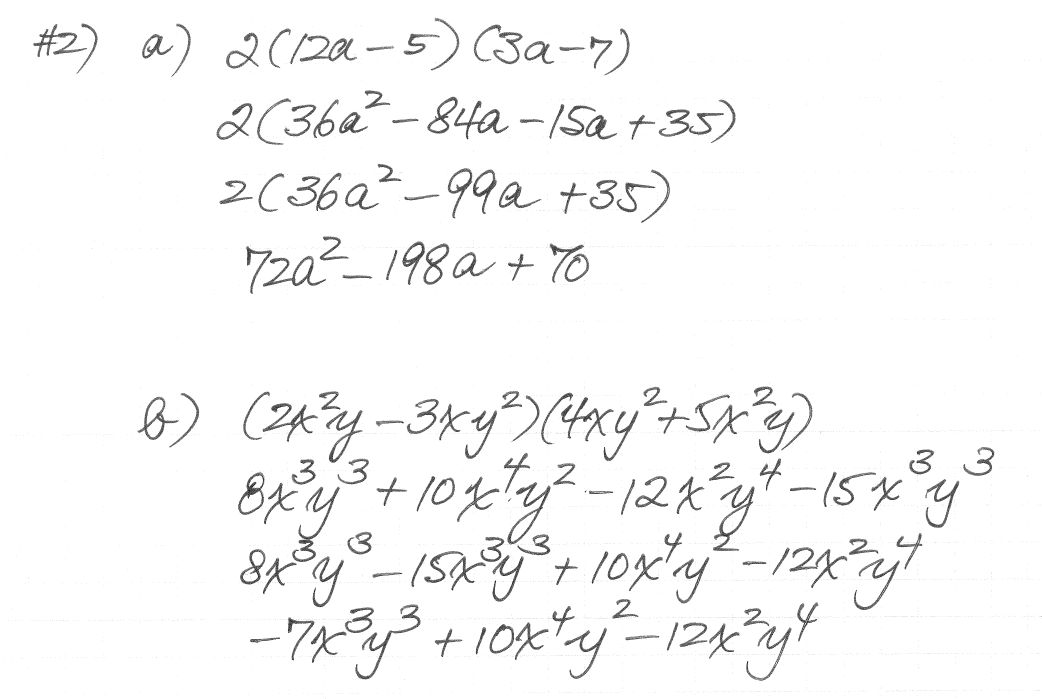 #2) a) 2(12a-5)(3a-7)
2(36a²-84a-15a+35)
2(36a²-99a+35)
72a²-198a+70
b) (2x²y-3xy²)(4xy²+5x²y)
8x³y³+10x⁴y²-12x²y⁴-15x³y³
8x³y³-15x³y³+10x⁴y²-12x²y⁴
-7x³y³+10x⁴y²-12x²y⁴